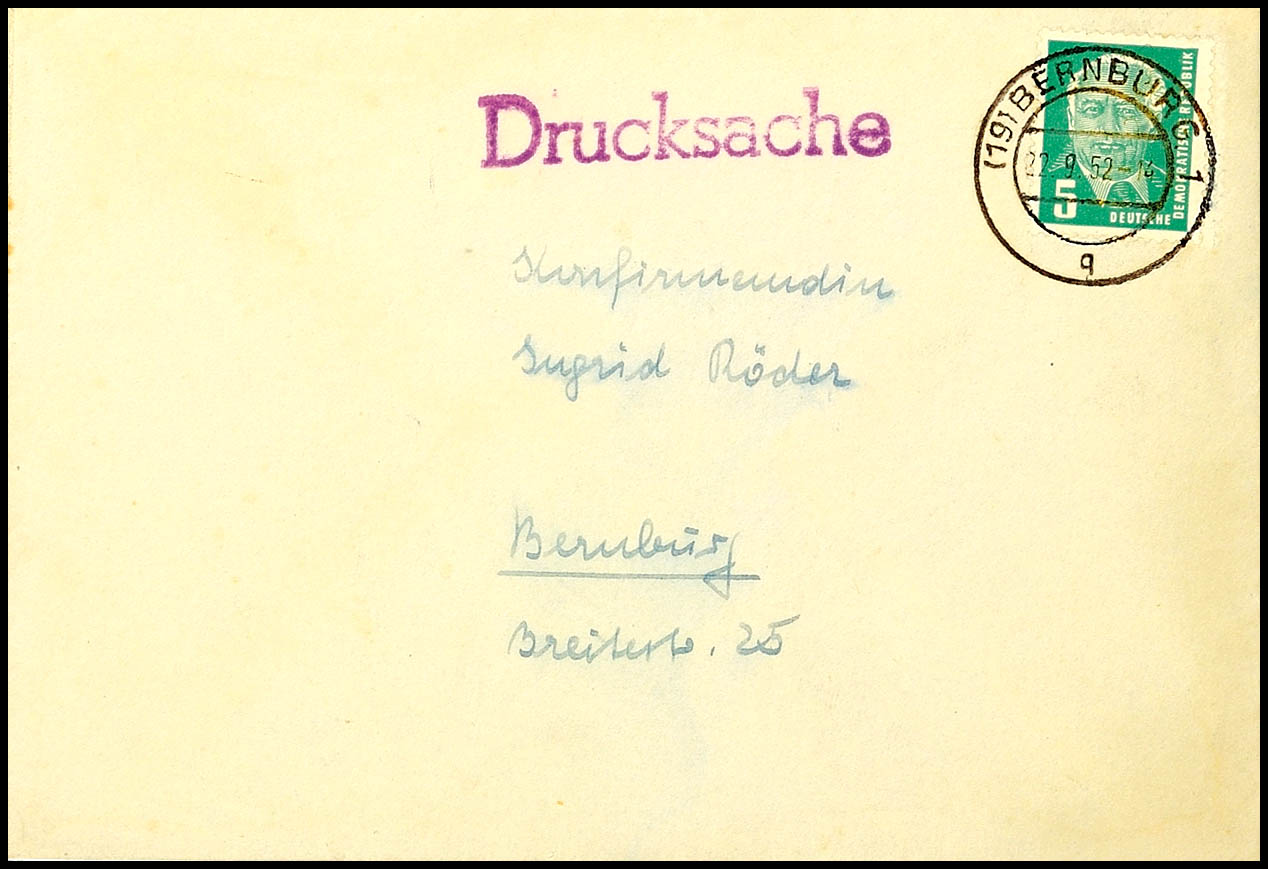 Drucksache
(19) BERNBURG 1
22.9.52-14
q
5
DEUTSCHE
DEMOKRATISCHE REPUBLIK
Konfirmandin
Ingrid Röder
Bernburg
Breitestr. 25